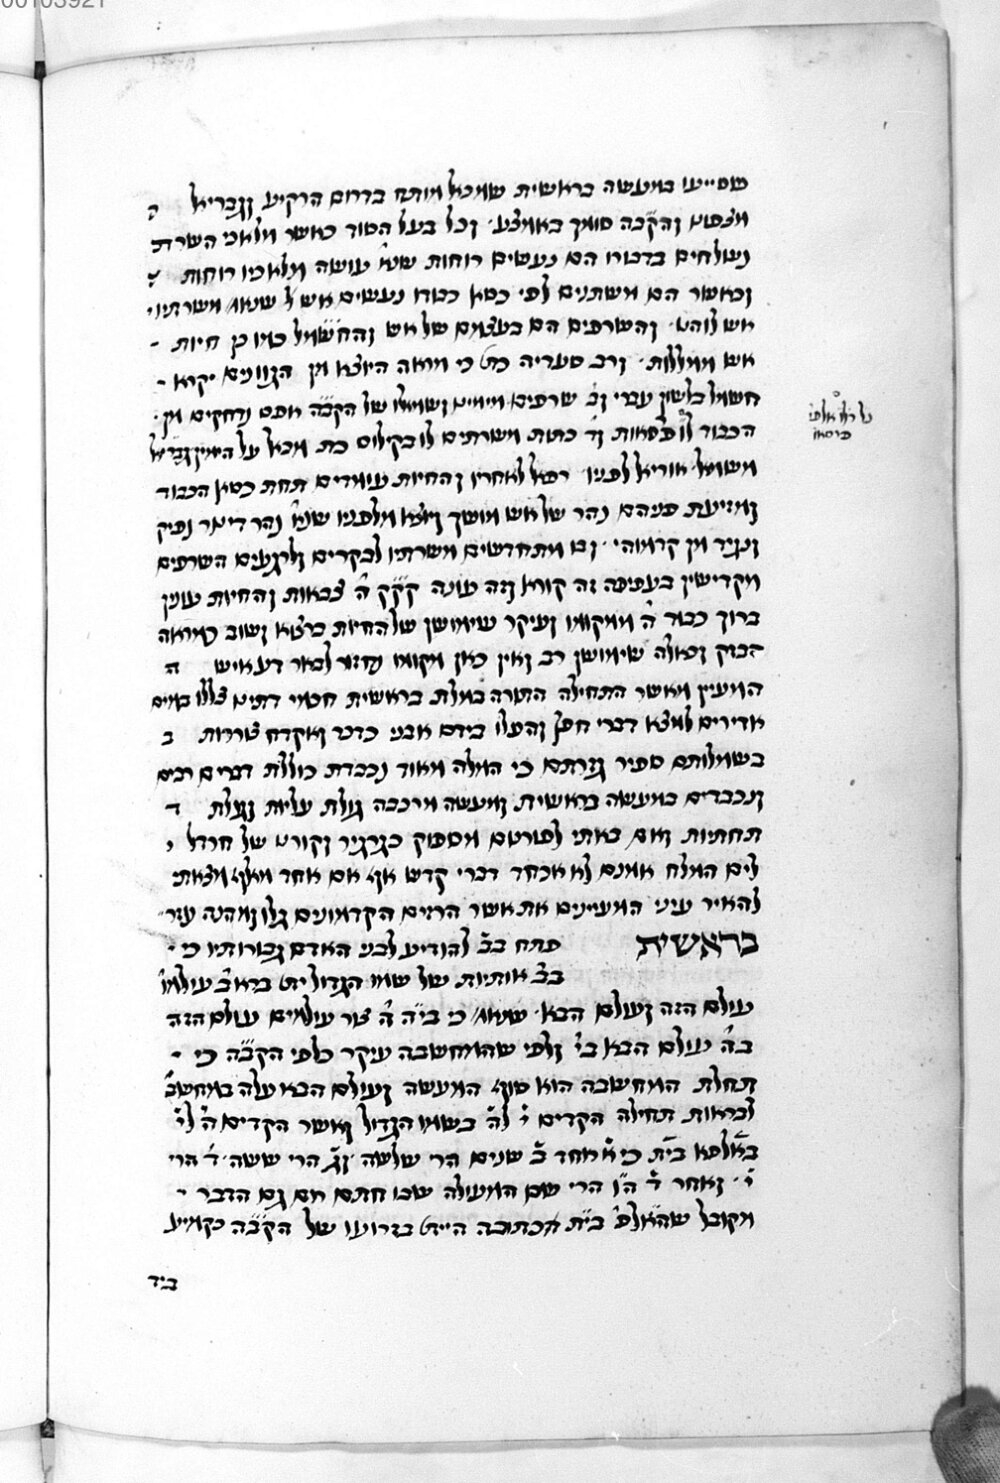 שסייעו במעשה בראשית שמיכאל מותח בדרום הרקיע וגבריאל
מצפון והק״בה סומך באמצע וכל בעל הסוד כאשר מלאכי השרת
נשלחים בדבורו הם נעשים רוחות שנ׳ עושה מלאכיו רוחות
וכאשר הם משתנים לפי כסא כבודו נעשים אש שנאמ׳ משרתיו
אש לוהט והשרפים הם בעצמם של אש והחשמל כמו כן חיות
אש ממללות ורב סעדיה כת׳ כי מראה היוצא מן הגוונים יקרא
חשמל בלשון עברי וב׳ שרפים מימין ושמאלו של הקב״ה והם נרחקים מן
הכבוד פרסאות וד׳ כתות משרתים לו בקילוס כת מיכאל על הימין גבריאל
משמאל אוריאל לפניו רפאל לאחריו והחיות עומדים תחת כסא הכבוד
ומזיעת פניהם נהר של אש מושך ויוצא מלפניו שנ׳ נהר דינור נפיק
ונגיד מן קדמוהי ובו מתחדשים משרתיו לבקרים ולרגעים השרפים
מקדישין בעפיפה זה קורא וזה עונה קק״ק ה׳ צבאות והחיות עונין
ברוך כבוד ה׳ ממקומו ועיקר שימושן של החיות ברצוא ושוב כמראה
הבזק וכאלה שימושן רב ואין כאן מקומו לבאר
המעיין מאשר התחילה התורה במלת בראשית חכמי צללו במים
אדירים למצא דברי חפץ והעלו בידם אבני כדכד ואקדח צרורות ב
בשמלותם ספיר גזרתם כי המלה מאוד נכבדת כוללת דברים רבים
ונכבדים במעשה בראשית ומעשה מרכבה גולת עליות וגולת
תחתיות ואם באתי לפורטם מספוק כגרגיר וקורט של חרדל
לים המלח אמנם לא אכחד דברי קדש אף אם אחד מאלף מצאתי
להאיר עיני המעיינים את אשר הרזים הקדמונים גלו ומהנה עזר
בראשית פתח בב׳ להודיע לבני האדם גבורותיו כי
בב׳ אותיות של שמו הגדול ית׳ ברא ב׳ עולמו׳
עולם הזה ועולם הבא שנאמ׳ כי בי״ה ה׳ צור עולמים עולם הזה
בה׳ עולם הבא בי׳ ולפי שהמחשבה עיקר כלפי הקב״ה כי
תחלת המחשבה הוא סוף המעשה ועולם הבא עלה במחשב׳
לבראות תחילה הקדים י׳ לה׳ בשמו הגדול ואשר הקדים ה׳ לי׳
באלפא בי״ת כי א׳ אחד ב׳ שנים הרי שלשה וג׳ הרי ששה ד׳ הרי
י׳ ואחר ד׳ ה״ו הרי שם המעולה שבו חתם הם גם הדבר
מקובל שהאלפ׳ בי״ת הכתובה היית׳ בזרועו של הקב״ה כקמיע
ביד